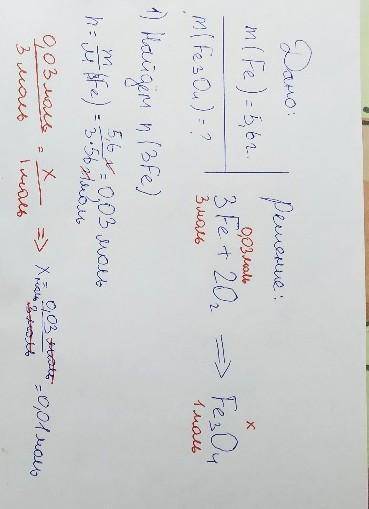 Дано:
m(Fe) = 5,6г.
m(Fe₃O₄) = ?
Решение:
0,03моль x
3Fe + 2O₂ ⟹ Fe₃O₄
3моль 1моль
1) Найдём n(3Fe)
n = m/M(Fe) = 5,6 г/3·56 г/моль = 0,03 моль
0,03 моль/3 моль = x/1 моль ⟹ x = 0,03 моль/3 моль = 0,01 моль